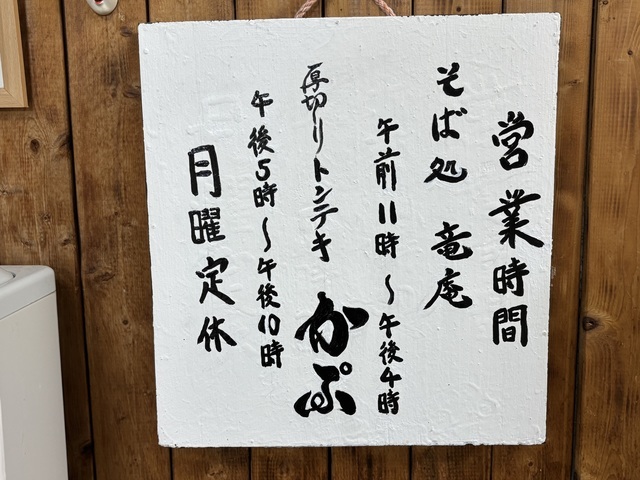 営業時間
そば処 竜庵
午前11時〜午後4時
厚切りトンテキ かぷ
午後5時〜午後10時
月曜定休